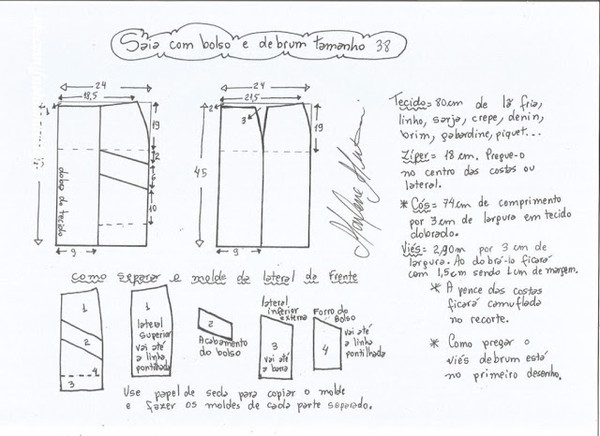 Saia com bolso e debrum tamanho 38
24
18,5
2
19
2
10
dobra do tecido
9
24
21,5
2
3
19
45
9
Tecido = 80cm de lã fria,
linho, sarja, crepe, denin,
brim, gabardine, piquet...
Zíper = 18 cm. Pregue-o
no centro das costas ou
lateral.
* Cós = 74cm de comprimento
por 3cm de largura em tecido
dobrado.
Viés = 2,90m por 3 cm de
largura. Ao dobrá-lo ficará
com 1,5cm sendo 1cm de margem.
* A pence das costas
ficará camuflada
no recorte.
* Como pregar o
viés debrum está
no primeiro desenho.
como separar o molde da lateral da frente
1
2
3
4
1
lateral
superior
vai até
a linha
pontilhada
2
Acabamento
do bolso
lateral
inferior
externa
3
vai até
a barra
Forro do
Bolso
4
vai até
a linha
pontilhada
Use papel de seda para copiar o molde
e fazer os moldes de cada parte separado.